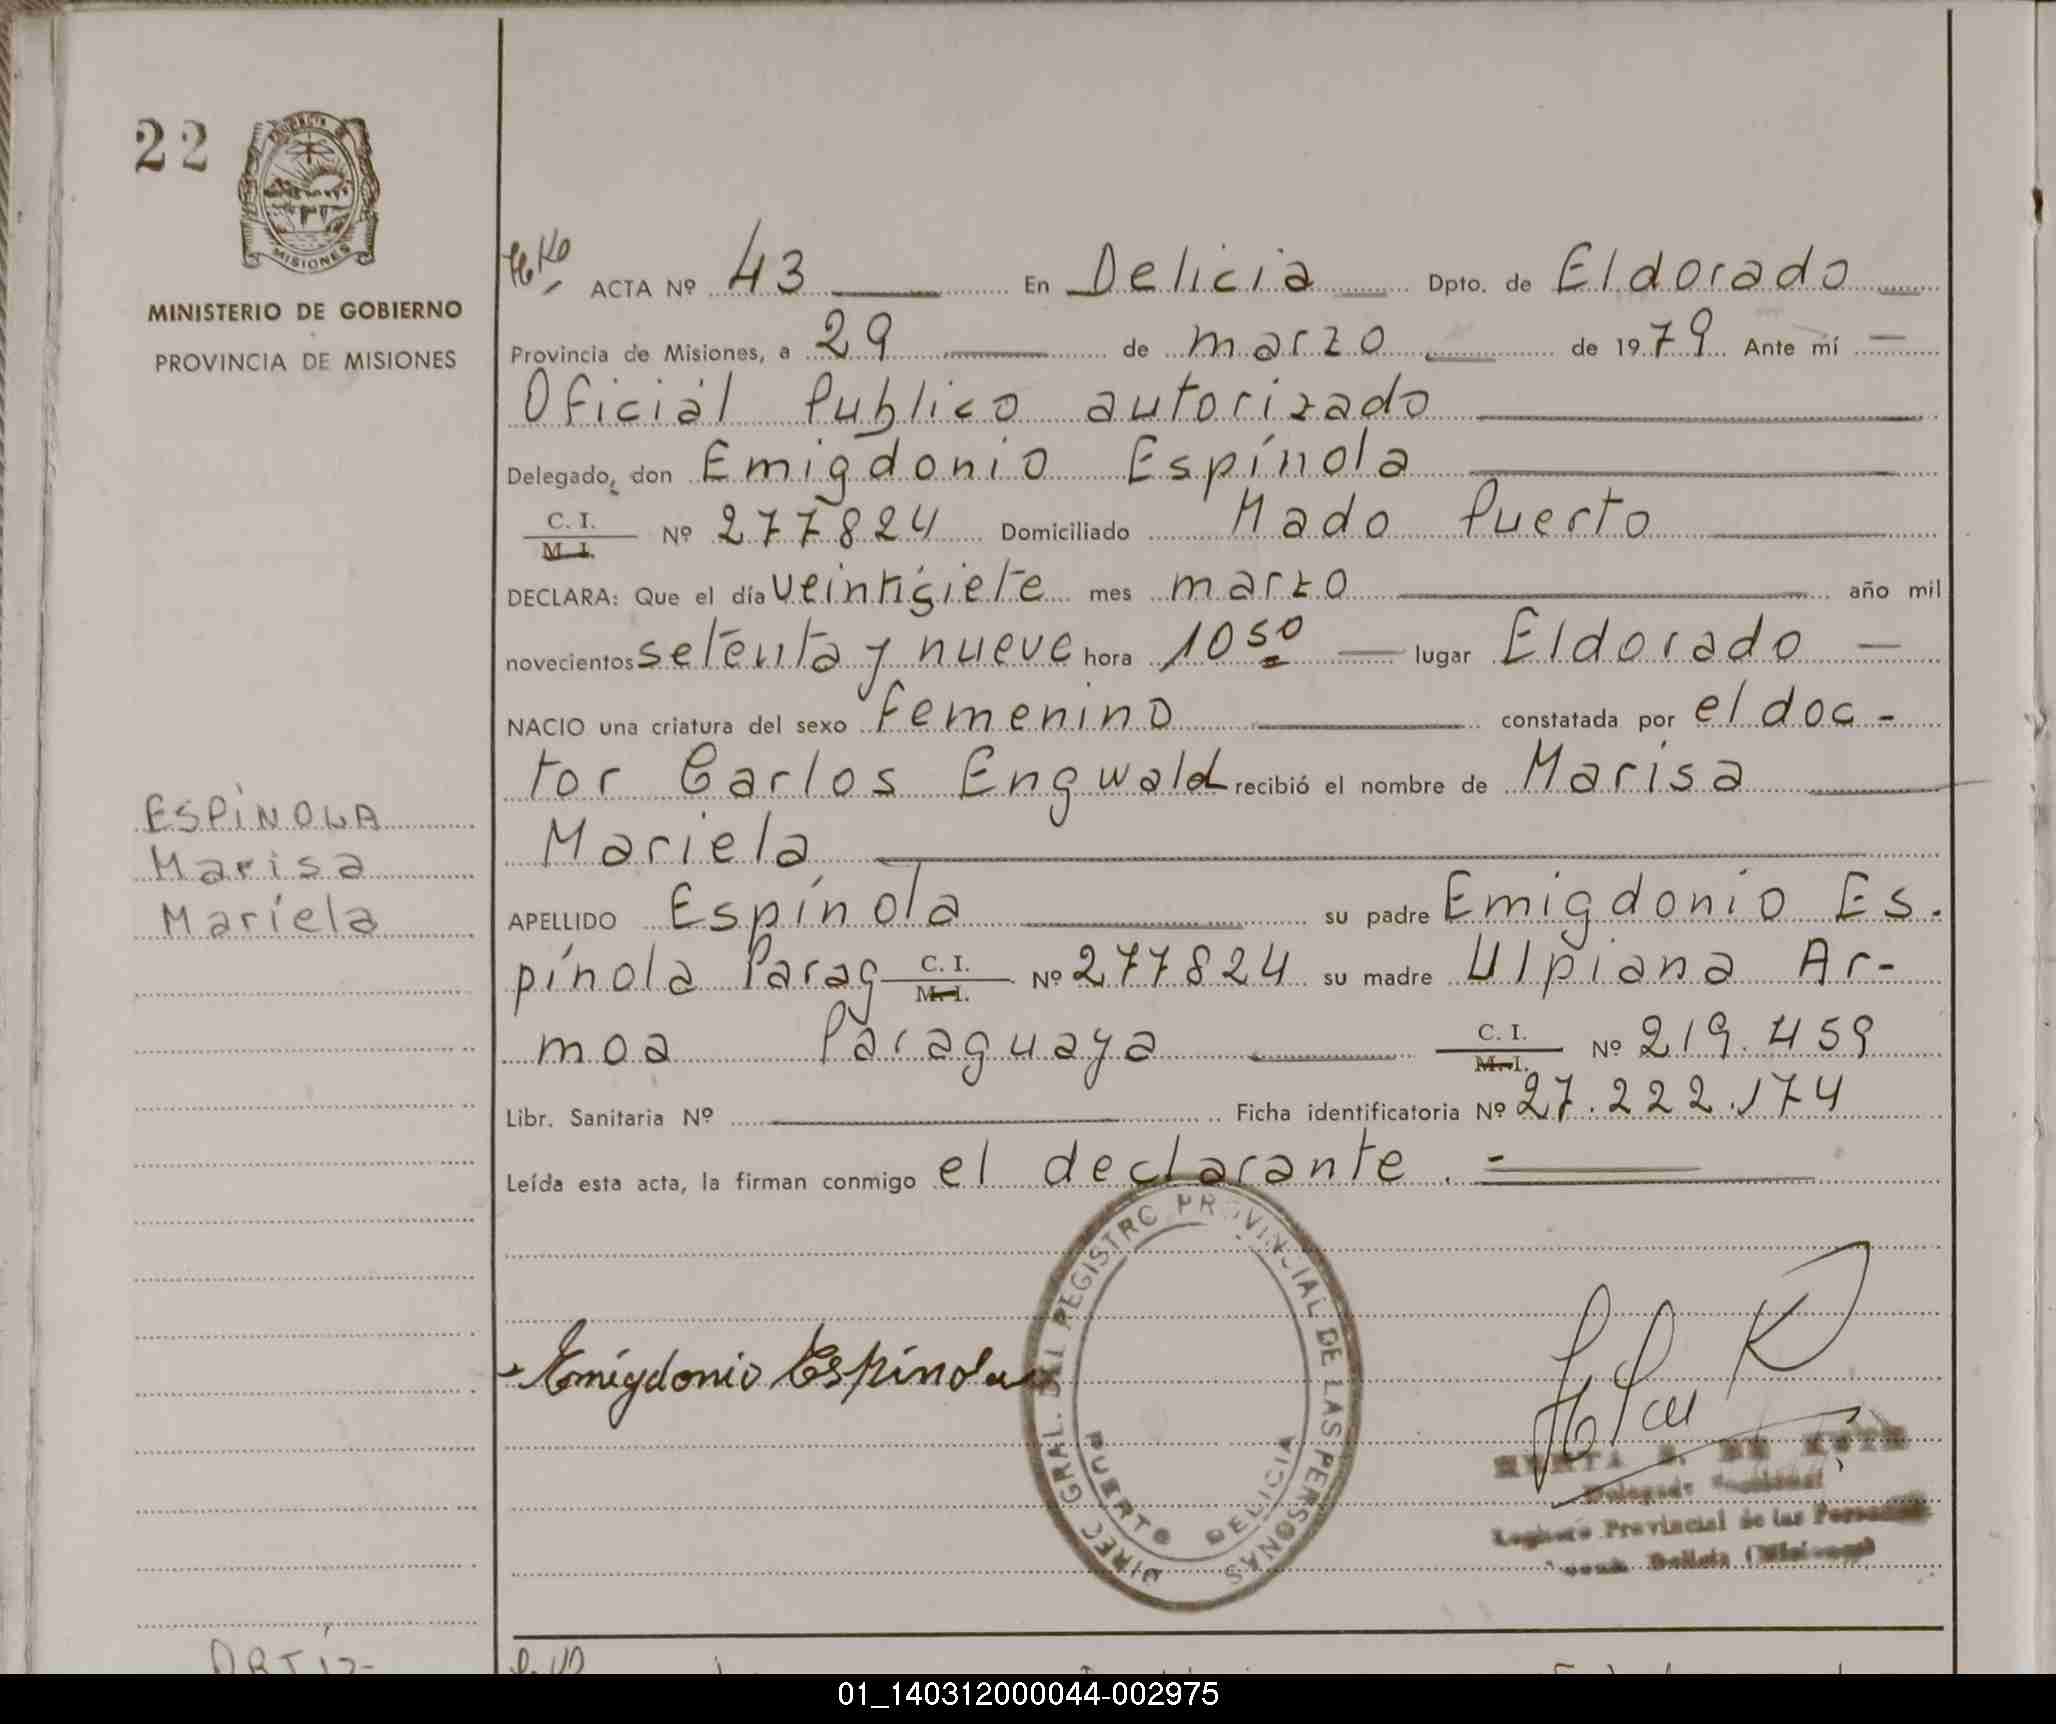 22
PROVINCIA DE
MISIONES
MINISTERIO DE GOBIERNO
PROVINCIA DE MISIONES
ESPÍNOLA
Marisa
Mariela
ACTA Nº 43 En Delicia Dpto. de Eldorado
Provincia de Misiones, a 29 de marzo de 1979 Ante mí
Oficial Publico autorizado
Delegado, don Emigdonio Espínola
C. I.
M. I. Nº 277824 Domiciliado Mado Puerto
DECLARA: Que el día veintisiete mes marzo año mil
novecientos setenta y nueve hora 10 50 lugar Eldorado
NACIO una criatura del sexo femenino constatada por el doc-
tor Carlos Engwald recibió el nombre de Marisa
Mariela
APELLIDO Espínola su padre Emigdonio Es-
pínola Parag C. I. M. I. Nº 277824 su madre Ulpiana Ar-
moa Paraguaya C. I. M. I. Nº 219.459
Libr. Sanitaria Nº Ficha identificatoria Nº 27.222.174
Leída esta acta, la firman conmigo el declarante.
Emigdonio Espínola
DIREC GRAL. DEL REGISTRO PROVINCIAL DE LAS PERSONAS
PUERTO DELICIA
Provincial de las
Delicia
01_140312000044-002975